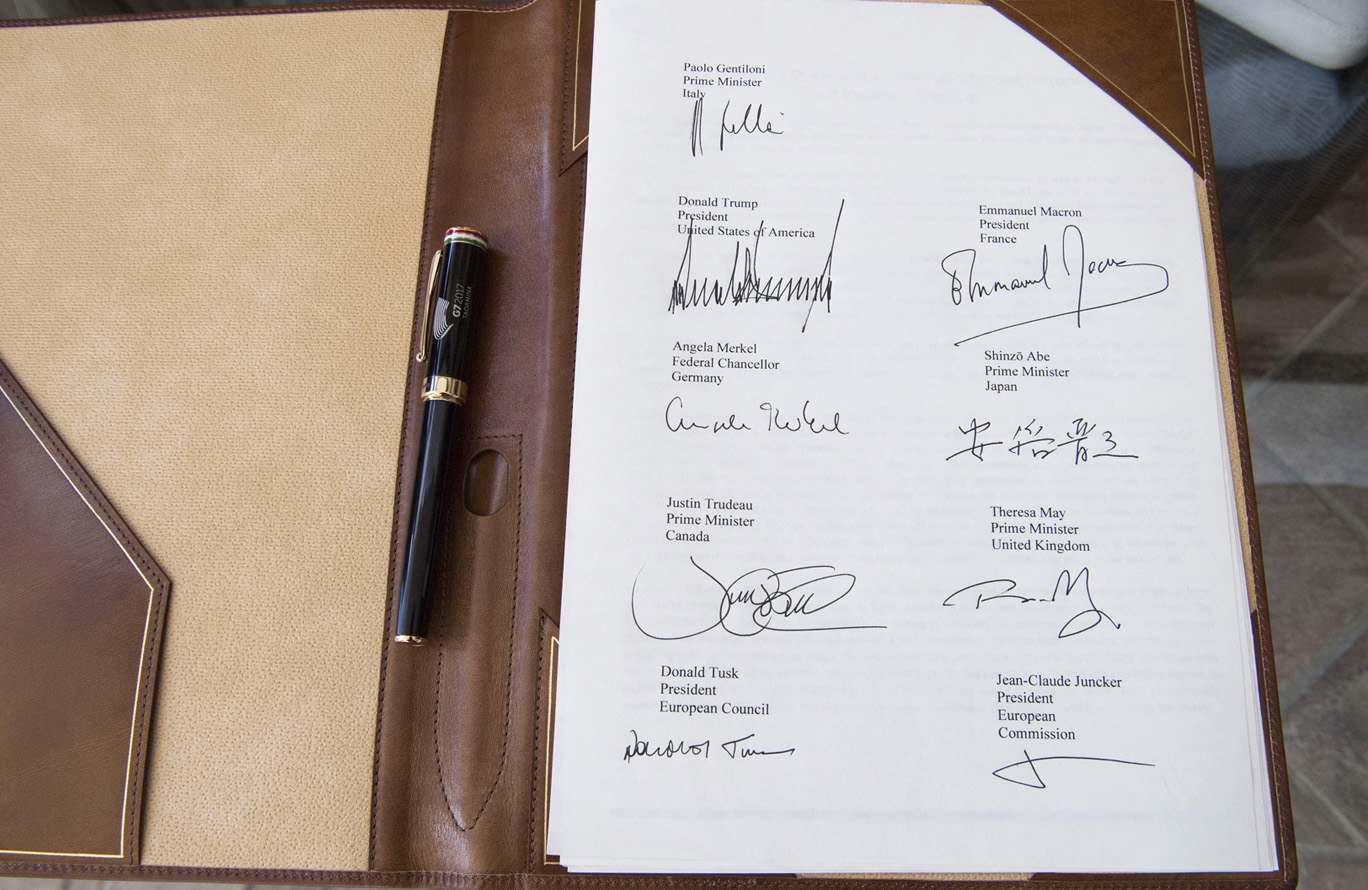 Paolo Gentiloni
Prime Minister
Italy
Donald Trump
President
United States of America
Emmanuel Macron
President
France
Emmanuel Macron
Angela Merkel
Federal Chancellor
Germany
Angela Merkel
Shinzō Abe
Prime Minister
Japan
安倍晋三
Justin Trudeau
Prime Minister
Canada
Theresa May
Prime Minister
United Kingdom
Donald Tusk
President
European Council
Donald Tusk
Jean-Claude Juncker
President
European
Commission
G7 2017
TAORMINA